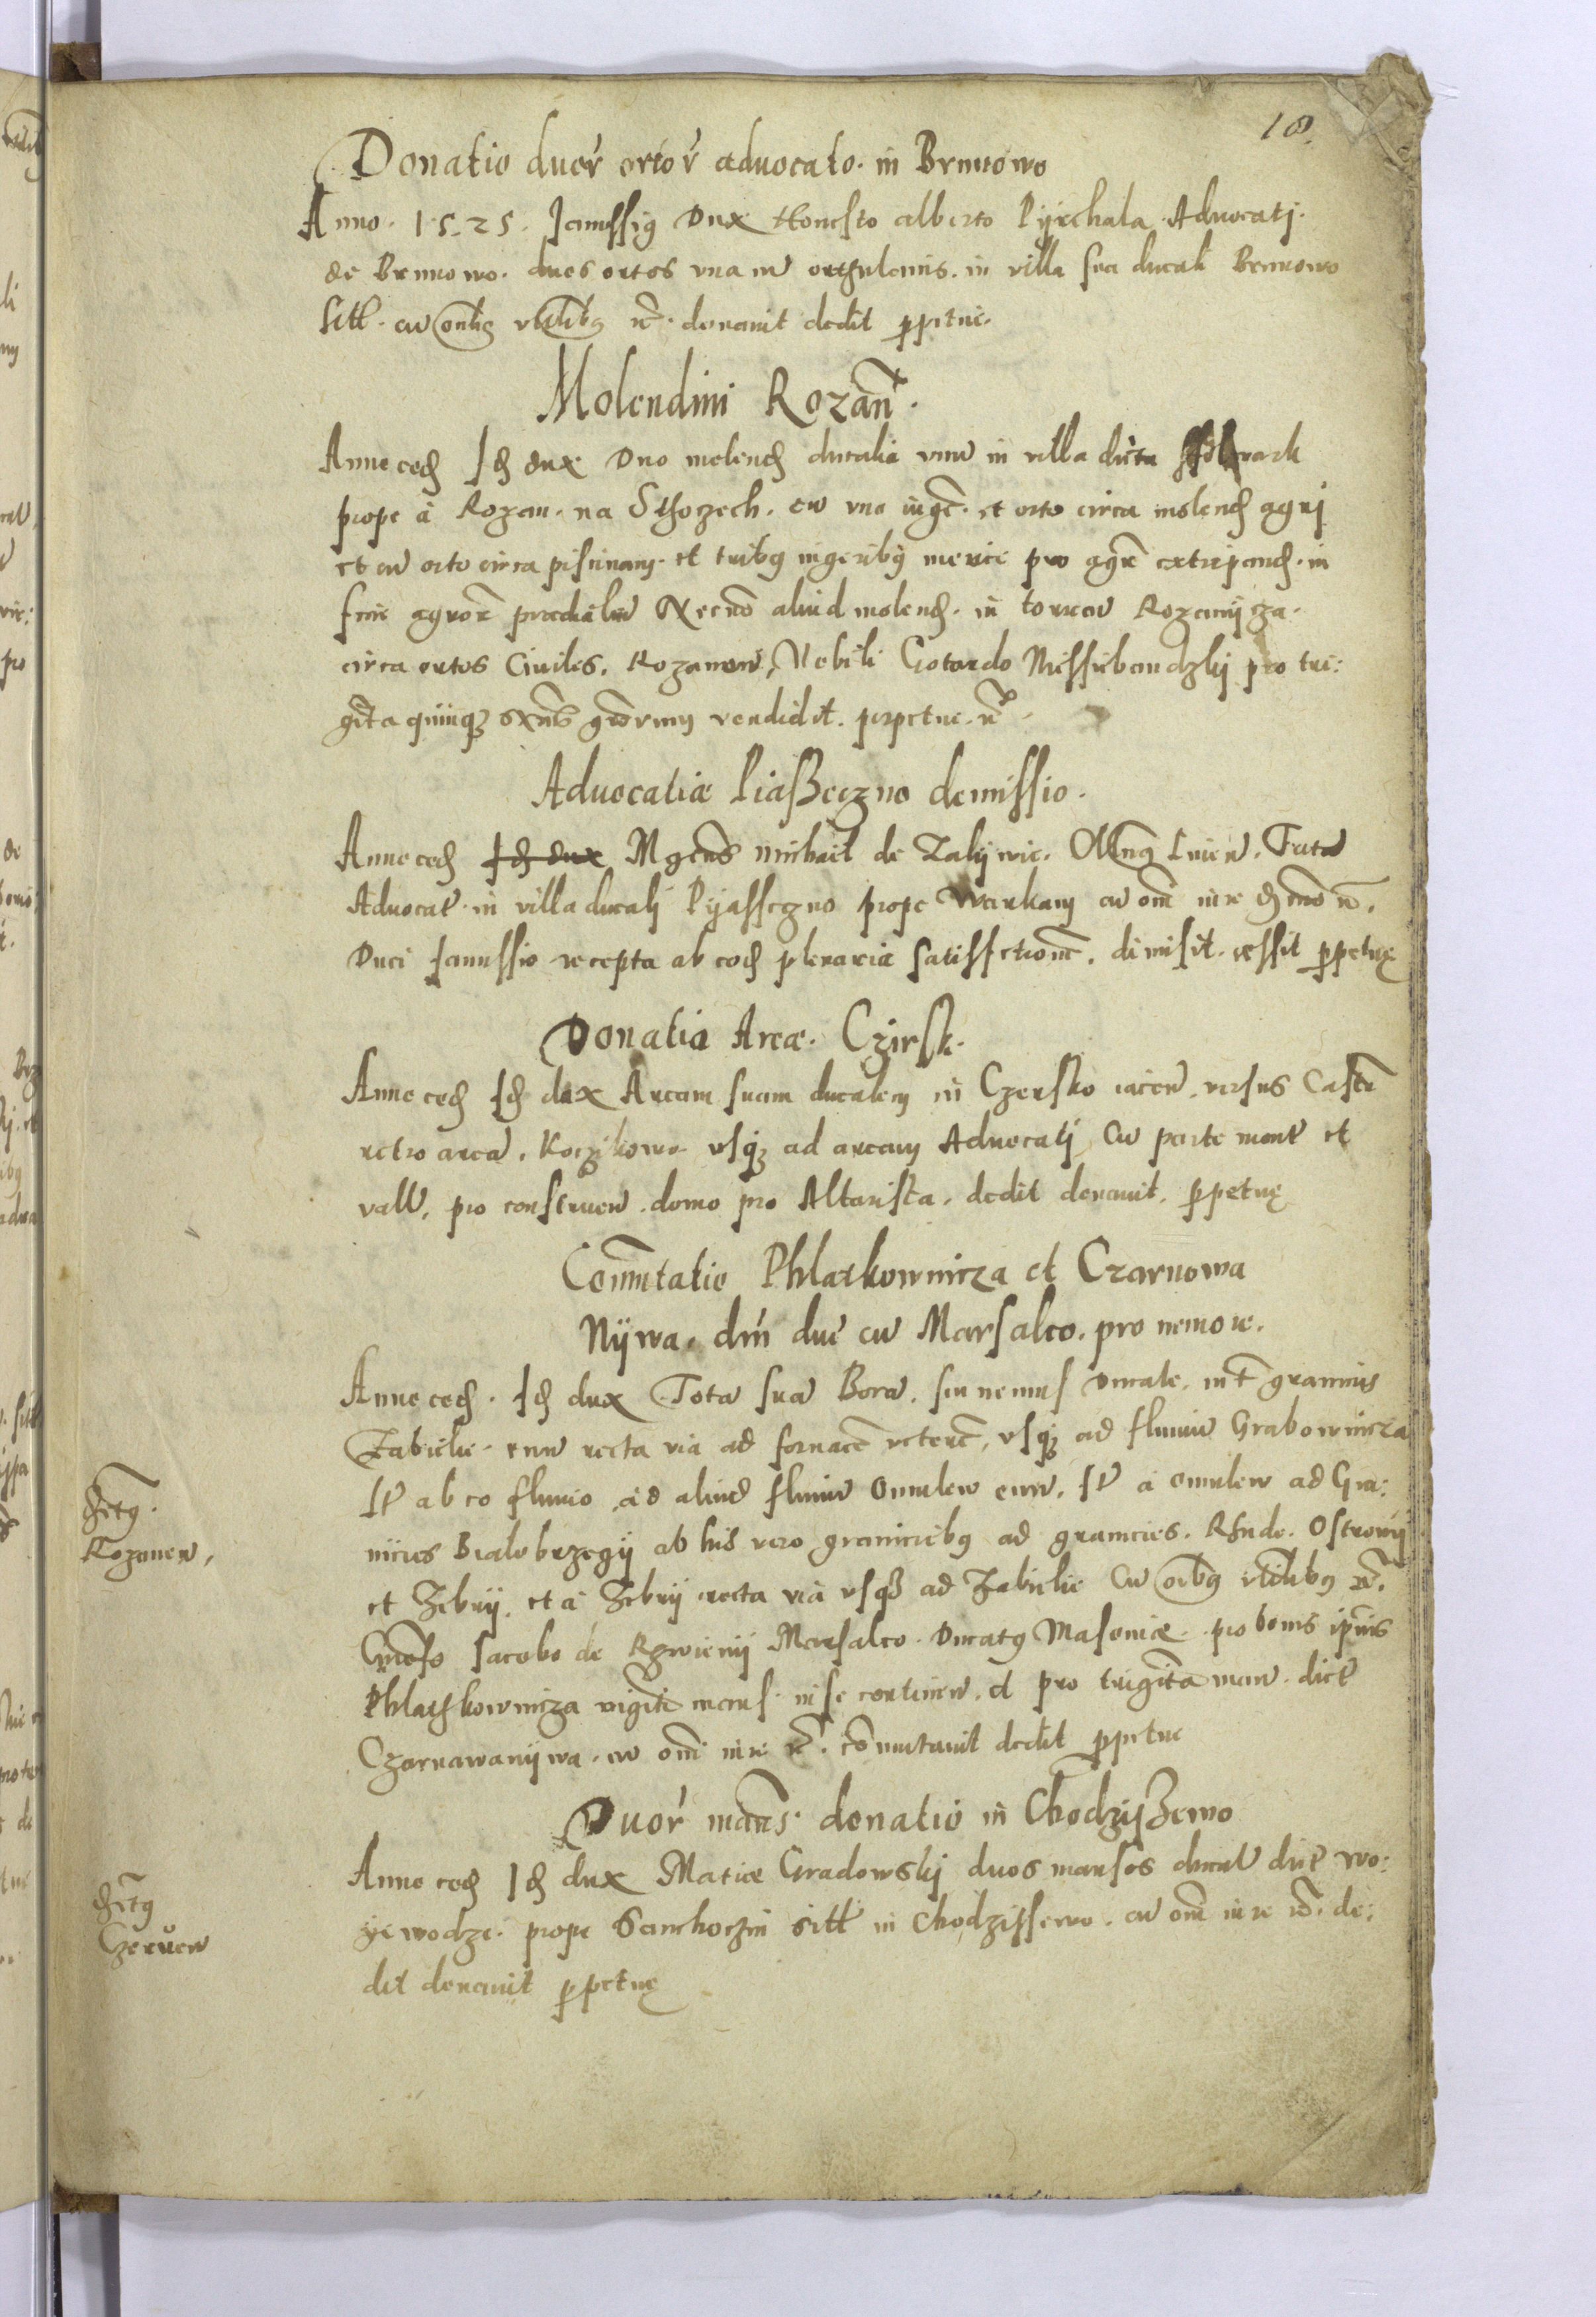 18.
Donatio duor ortor advocato. in Brmnowo
Anno. 1525. Janussig Dux Honesto alberto Pijrchala Advocatj.
de Brmnowo. duos ortos vna cu ortgulanis. in villa sua ducali Bramowo
Sitt. cu omibg vtilitbg rc. donauit dedit ppetue.
Molendini Rozan.
Anno eod Id dux Duo molend ducalia vnu in villa dicta ffolwark
prope a Rozan. na Sthoczech. cu vno iuge. et orto circa molend agri
et cu orto circa piscinam. et tribg iugeribg merice pro agre extirpand. in
fine agror predialiu Necno aliud molend. in torren Rozanijcza.
circa ortos Ciuiles. Rozanen, Nobili Gotardo Missiebandzkj pro tri:
ginta quinqz sexas grorum vendidit. perpetue. rc
Advocatiæ Piaßeczno demissio.
Anno eod Id dux Mgcus michael de Zalijwie. Tuta
Advocat. in villa ducalj Pijasseczno prope Warkam cu omi iure
Duci Janussio recepta ab eod plenaria satisfctione. dimisit. cessit ppetuę
Donatio Areæ. Czirsk.
Anno eod Id dux Aream suam ducalem in Czersko iacen. versus Castr
retro area. Koczikowo vsqz ad aream Advocatj Cu parte mont et
vall. pro construen. domo pro Altarista. dedit donauit. ppetuę
Comutatio Phlaczkownicza et Czarnowa
Nijwa. dni due cu Marsalco. pro nemore.
Anno eod. Id dux Tota sua Bora. siu nemus ducale. int granicies
Zabielie. eun recta via ad fornace vetere, vsqz ad fluuiu Grabownicza
It ab eo fluuio ad aliud fluuiu Omulew eun. It a omulew ad Gra:
nicies Bialobrzegij ab his vero graniciebg ad granicies. Rsnde. Ostrowij
et Zebrij. et a Zebrij recta via vsqz ad Zabielie Cu oibg vtilitbg rc.
Gnoso Jacobo de Rzwienij Marsalco Ducatg Masoniæ. pro bonis ipius
Phlaczkownicza viginti mans. in se continen. et pro triginta man. dict
Czarnawanijwa. cu omi iure rc. comutauit dedit ppetue
Duor mans. donatio in Chodzijßewo
Anno eod Id dux Matiæ Gradowskj duos mansos ducal dict wo:
ijewodze. prope Samhoczin sitt in Chodzissewo. cu omi iure rc. de:
dit donauit ppetuę
Rozanen.
Czeruen